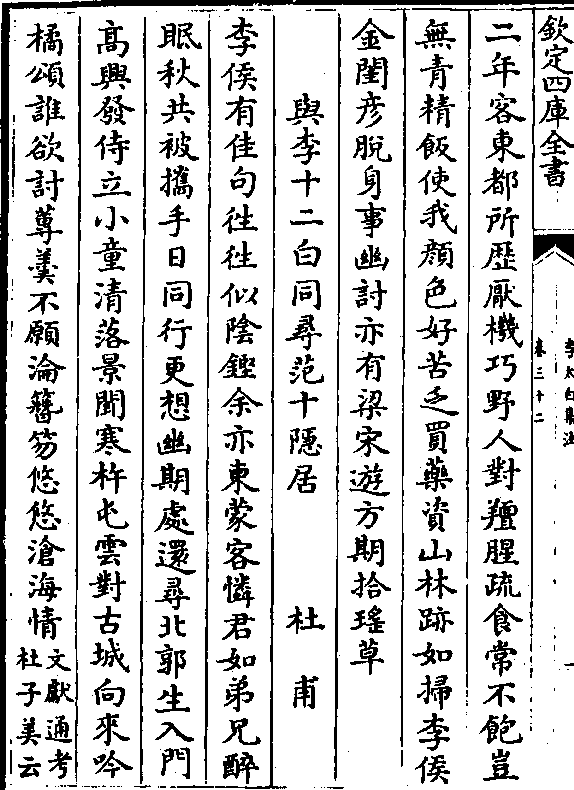 欽定四庫全書
李太白集注
卷三十二
二年客東都所歷厭機巧野人對羶腥疏食常不飽豈
無青精飯使我顔色好苦乏買藥資山林跡如掃李侯
金閨彦脫身事幽討亦有梁宋遊方期拾瑤草
與李十二白同尋范十隱居　杜甫
李侯有佳句徃徃似陰鏗余亦東蒙客憐君如弟兄醉
眠秋共被攜手日同行更想幽期處還尋北郭生入門
高興發侍立小童清落景聞寒杵屯雲對古城向來吟
橘頌誰欲討蓴羹不願論簪笏悠悠滄海情文獻通考
杜子美云